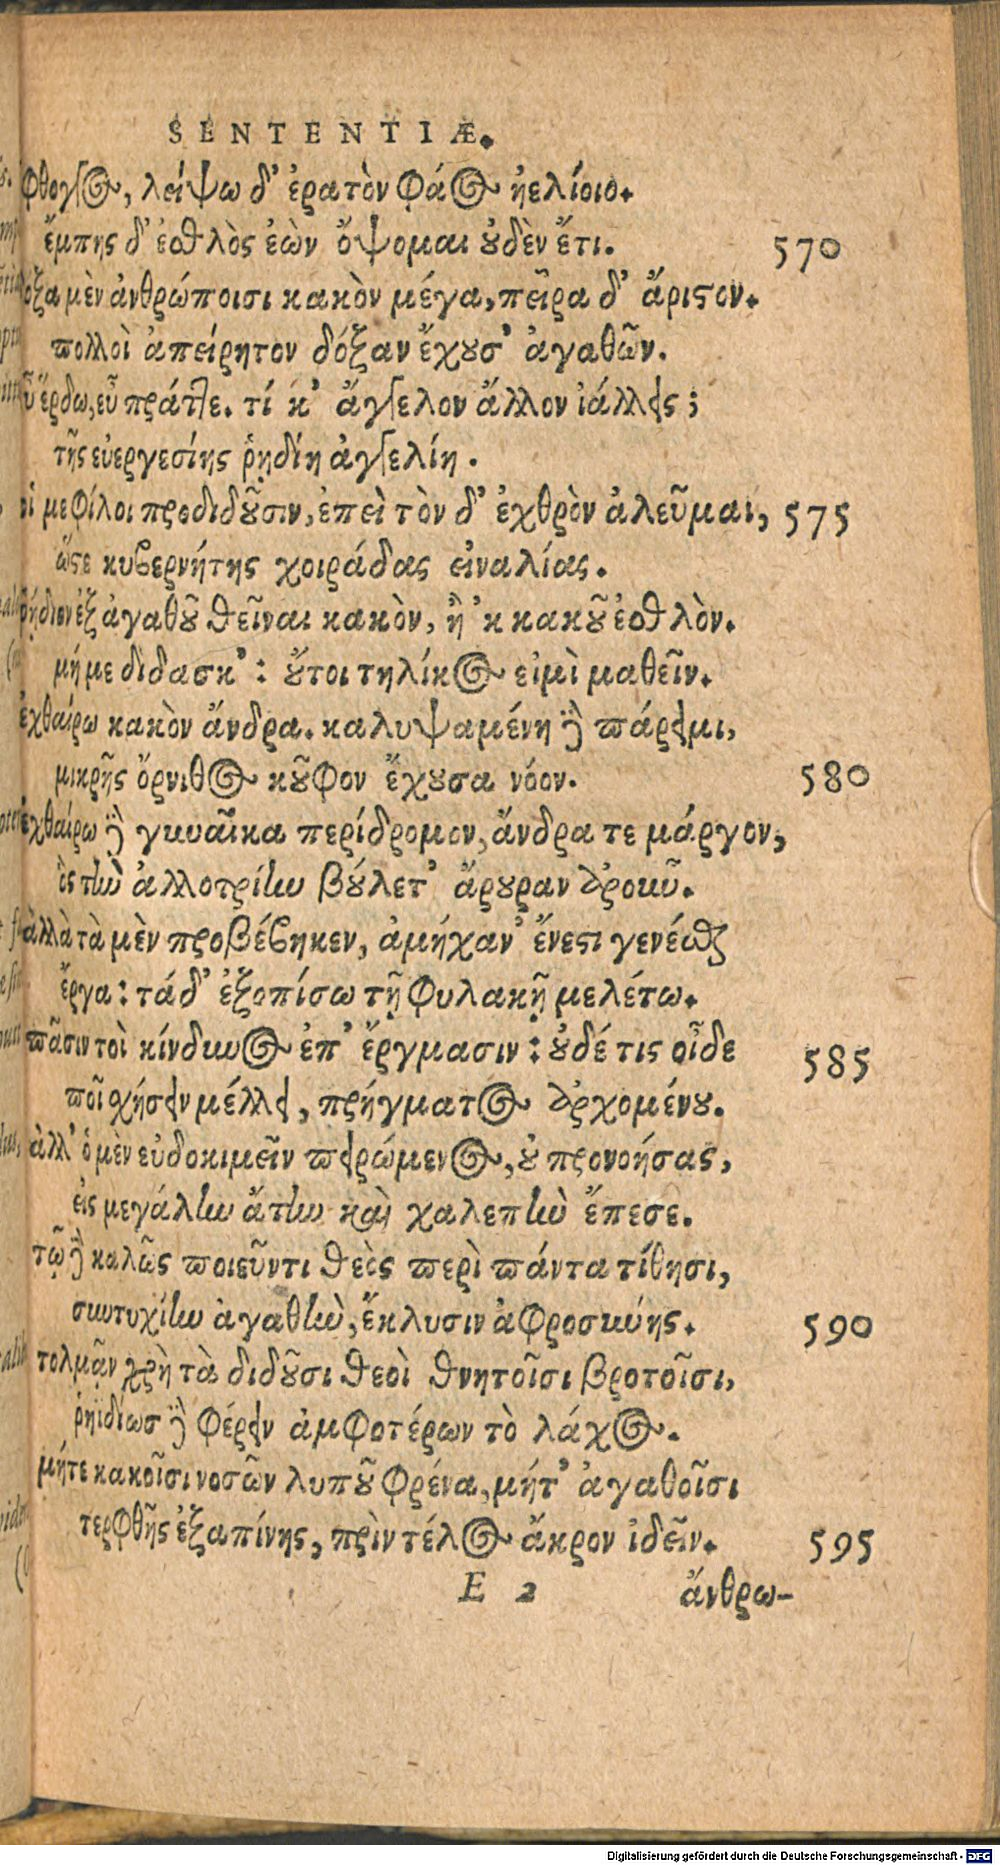 SENTENTIÆ.
φθογγος, λείψω δ' ἐρατὸν φάος ἠελίοιο.
ἔμπης δ' ἐσθλὸς ἐὼν ὄψομαι οὐδὲν ἔτι. 570
δόξα μὲν ἀνθρώποισι κακὸν μέγα, πεῖρα δ' ἄριστον.
πολλοὶ ἀπείρητον δόξαν ἔχουσ' ἀγαθῶν.
εὖ ἔρδω, εὖ πράττε. τί κ' ἄγγελον ἄλλον ἰάλλεις;
τῆς εὐεργεσίης ῥηδίη ἀγγελίη.
οἱ με φίλοι προδιδοῦσιν, ἐπεὶ τὸν δ' ἐχθρὸν ἀλεῦμαι, 575
ὥστε κυβερνήτης χοιράδας εἰναλίας.
ῥήδιον ἐξ ἀγαθοῦ θεῖναι κακὸν, ἢ 'κ κακοῦ ἐσθλὸν.
μή με δίδασκ': οὔτοι τηλίκος εἰμὶ μαθεῖν.
ἐχθαίρω κακὸν ἄνδρα. καλυψαμένη δὲ πάρειμι,
μικρῆς ὄρνιθος κοῦφον ἔχουσα νόον. 580
ἐχθαίρω δὲ γυναῖκα περίδρομον, ἄνδρα τε μάργον,
ὃς τὴν ἀλλοτρίην βούλετ' ἄρουραν ἀροῦν.
ἀλλὰ τὰ μὲν προβέβηκεν, ἀμήχαν' ἔνεστι γενέσθαι
ἔργα: τά δ' ἐξοπίσω τῇ φυλακῇ μελέτω.
πᾶσιν τοὶ κίνδυνος ἐπ' ἔργμασιν: οὐδέ τις οἶδε 585
ποῖ σχήσειν μέλλει, πρήγματος ἀρχομένου.
ἀλλ' ὁ μὲν εὐδοκιμεῖν πειρώμενος, οὐ προνοήσας,
εἰς μεγάλην ἄτην καὶ χαλεπὴν ἔπεσε.
τῷ δὲ καλῶς ποιεῦντι θεὸς περὶ πάντα τίθησι,
συντυχίην ἀγαθὴν, ἔκλυσιν ἀφροσύνης. 590
τολμᾷν χρὴ τὰ διδοῦσι θεοὶ θνητοῖσι βροτοῖσι,
ῥηϊδίως δὲ φέρειν ἀμφοτέρων τὸ λάχος.
μήτε κακοῖσι νοσῶν λυποῦ φρένα, μήτ' ἀγαθοῖσι
τερφθῇς ἐξαπίνης, πρὶν τέλος ἄκρον ἰδεῖν. 595
E 2 ἄνθρω-
Digitalisierung gefördert durch die Deutsche Forschungsgemeinschaft - DFG